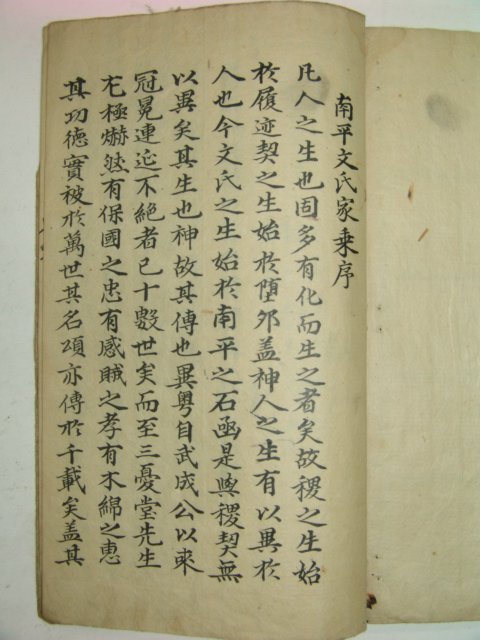 南平文氏家乗序
凡人之生也固多有化而生之者矣故稷之生始
於履迹契之生始於堕卵盖神人之生有以異於
人也今文氏之生始於南平之石函是與稷契無
以異矣其生也神故其傳也異粤自武成公以来
冠冕連延不絶者已十數世矣而至三憂堂先生
尤極爀然有保國之忠有感賊之孝有木綿之惠
其功德實被於萬世其名頌亦傳於千載矣盖其